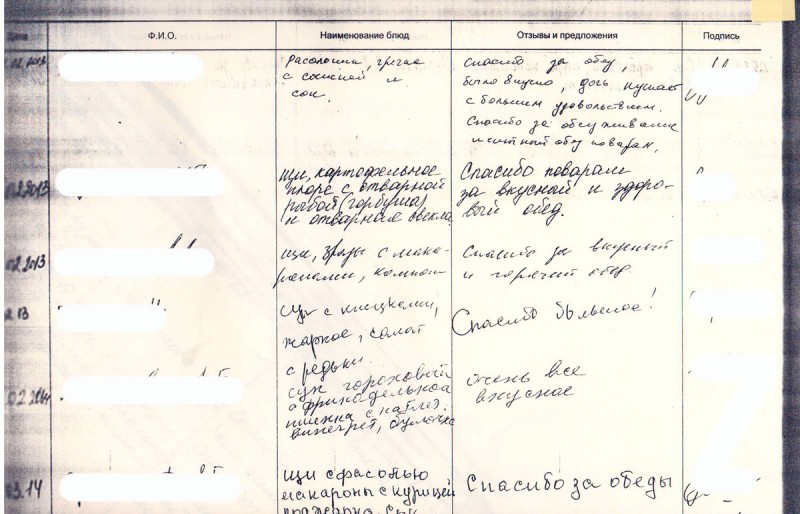 Ф.И.О. Наименование блюд Отзывы и предложения Подпись
02.2013
Рассольник, гречка
с сосиской и
сок.
Спасибо за обед,
было вкусно, дочь кушает
с большим удовольствием.
Спасибо за обслуживание
и сытный обед поварам.
02.2013
щи, картофельное
пюре с отварной
рыбой (горбуша)
и отварная свекла
Спасибо поварам
за вкусный и здоро-
вый обед.
02.2013
щи, зразы с мака-
ронами, компот
Спасибо за вкусный
и горячий обед.
2.13
Суп с клецками,
жаркое, салат
с редьки.
Спасибо большое!
02.2014
суп гороховый
с фрикаделькой
пшенка с котлет.
винегрет, булочка
очень все
вкусное
03.14
щи с фасолью
макароны с курицей
Спасибо за обеды